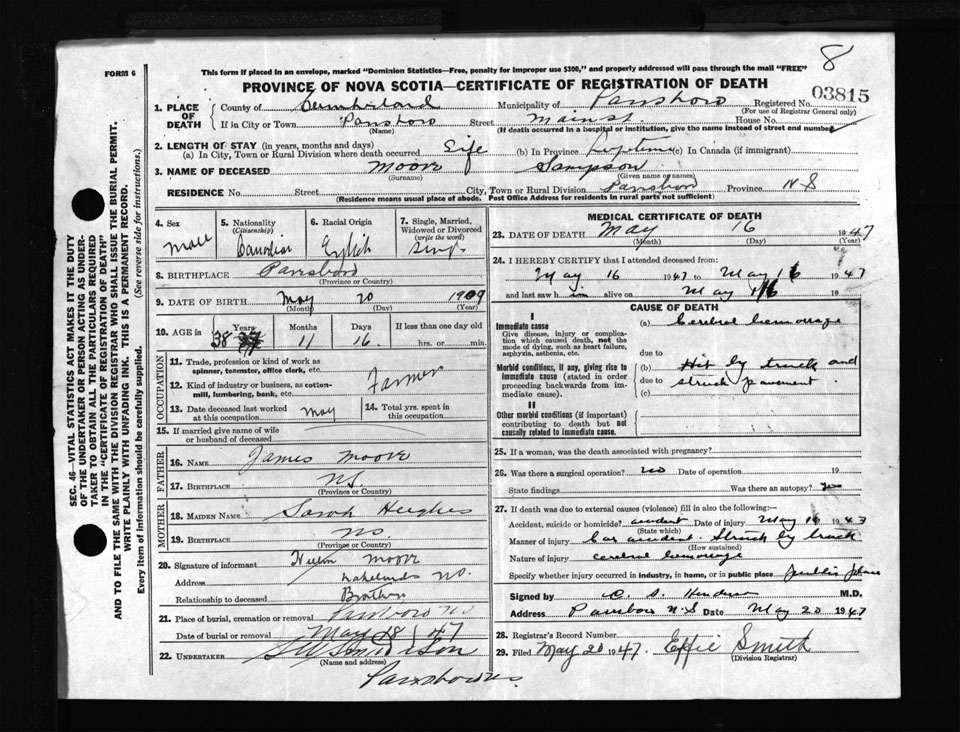 8
FORM 6
This form if placed in an envelope, marked "Dominion Statistics—Free, penalty for improper use $300," and properly addressed will pass through the mail "FREE"
PROVINCE OF NOVA SCOTIA—CERTIFICATE OF REGISTRATION OF DEATH
03815
1. PLACE OF DEATH
County of Cumberland Municipality of Parrsboro Registered No.
(For use of Registrar General only)
If in City or Town Parrsboro Street Main St. House No.
(Name) (If death occurred in a hospital or institution, give the name instead of street and number)
2. LENGTH OF STAY (in years, months and days)
(a) In City, Town or Rural Division where death occurred Life (b) In Province Lifetime (c) In Canada (if immigrant)
3. NAME OF DECEASED Moore Sampson
(Surname) (Given name or names)
RESIDENCE No. Street City, Town or Rural Division Parrsboro Province N S
(Residence means usual place of abode. Post Office Address for residents in rural parts not sufficient)
4. Sex Male
5. Nationality (Citizenship) Canadian
6. Racial Origin English
7. Single, Married, Widowed or Divorced (write the word) Sing.
8. BIRTHPLACE Parrsboro
(Province or Country)
9. DATE OF BIRTH May 20 1909
(Month) (Day) (Year)
10. AGE in Years Months Days If less than one day old
38 11 16. hrs. or min.
OCCUPATION
11. Trade, profession or kind of work as spinner, teamster, office clerk, etc.
12. Kind of industry or business, as cotton-mill, lumbering, bank, etc.
Farmer
13. Date deceased last worked at this occupation May
14. Total yrs. spent in this occupation
15. If married give name of wife or husband of deceased
FATHER
16. NAME James Moore
17. BIRTHPLACE N.S.
(Province or Country)
MOTHER
18. MAIDEN NAME Sarah Hughes
19. BIRTHPLACE N.S.
(Province or Country)
20. Signature of informant Moore
Address Lakelands N.S.
Relationship to deceased Brother
21. Place of burial, cremation or removal Parrsboro N S
Date of burial or removal May 18 / 47
22. UNDERTAKER & Son
(Name and address)
Parrsboro N.S.
MEDICAL CERTIFICATE OF DEATH
23. DATE OF DEATH May 16 1947
(Month) (Day) (Year)
24. I HEREBY CERTIFY that I attended deceased from:
May 16 1947 to May 16 1947
and last saw h im alive on May 16 19
CAUSE OF DEATH
I
Immediate cause
Give disease, injury or complication which caused death, not the mode of dying, such as heart failure, asphyxia, asthenia, etc.
(a) Cerebral hemorrage
due to
Morbid conditions, if any, giving rise to immediate cause (stated in order proceeding backwards from immediate cause).
(b) Hit by truck and
due to struck pavement
(c)
II
Other morbid conditions (if important) contributing to death but not causally related to immediate cause.
25. If a woman, was the death associated with pregnancy?
26. Was there a surgical operation? no Date of operation 19
State findings Was there an autopsy?
27. If death was due to external causes (violence) fill in also the following:—
Accident, suicide or homicide? accident Date of injury May 16 1947
(State which)
Manner of injury Car accident. Struck by truck
(How sustained)
Nature of injury cerebral hemorrage
Specify whether injury occurred in industry, in home, or in public place public place
Signed by C. S. M.D.
Address Parrsboro N.S Date May 20 1947
28. Registrar's Record Number
29. Filed May 20 1947. Effie Smith
(Division Registrar)
SEC. 46—VITAL STATISTICS ACT MAKES IT THE DUTY
OF THE UNDERTAKER OR PERSON ACTING AS UNDER-
TAKER TO OBTAIN ALL THE PARTICULARS REQUIRED
IN THE "CERTIFICATE OF REGISTRATION OF DEATH"
AND TO FILE THE SAME WITH THE DIVISION REGISTRAR WHO SHALL ISSUE THE BURIAL PERMIT.
WRITE PLAINLY WITH UNFADING INK. THIS IS A PERMANENT RECORD.
Every item of information should be carefully supplied. (See reverse side for instructions.)